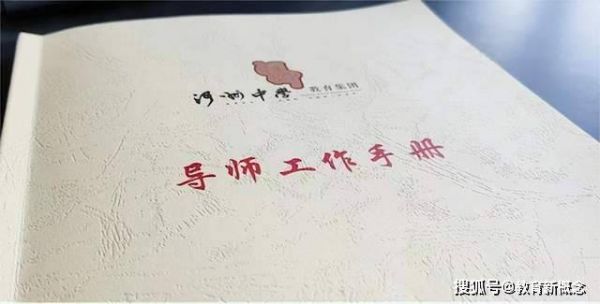 中學 教育集团
导师工作手册
搜狐号@教育新概念